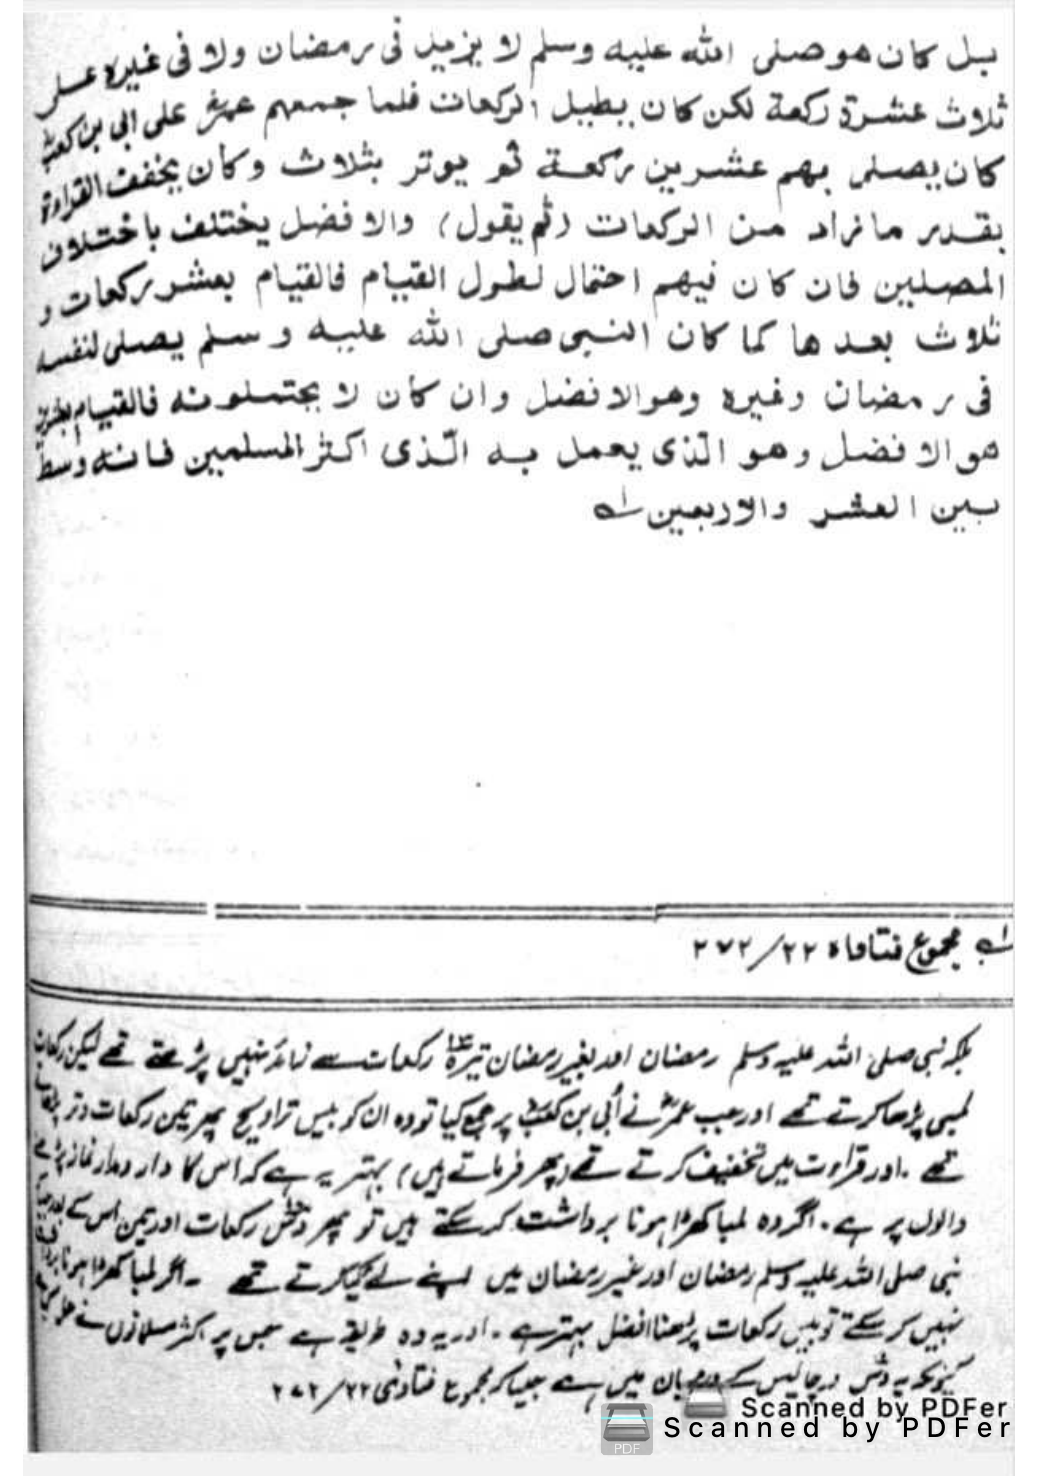 بل كان هو صلى الله عليه وسلم لا يزيد فى رمضان ولا فى غيره على
ثلاث عشرة ركعة لكن كان يطيل الركعات فلما جمعهم عمرؓ على ابى بن كعبؓ
كان يصلى بهم عشرين ركعة ثم يوتر بثلاث وكان يخفف القراءة
بقدر ما زاد من الركعات (ثم يقول) والافضل يختلف باختلاف
المصلين فان كان فيهم احتمال لطول القيام فالقيام بعشر ركعات و
ثلاث بعدها كما كان النبى صلى الله عليه وسلم يصلى لنفسه
فى رمضان وغيره وهو الافضل وان كان لا يحتملونه فالقيام بعشرين
هو الافضل وهو الّذى يعمل به الّذى اكثر المسلمين فانه وسط
بين العشر والاربعين لہ
لہ مجموع فتاواه ۲۲/۲۷۲
بلکہ نبی صلی اللہ علیہ وسلم رمضان اور بغیر رمضان تیرہ ۱۳ رکعات سے زائد نہیں پڑھتے تھے لیکن رکعات
لمبی پڑھا کرتے تھے اور جب عمرؓ نے اُبی بن کعبؓ پر جمع کیا تو وہ ان کو بیس تراویح پھر تین رکعات وتر
تھے ۔ اور قراءت میں تخفیف کرتے تھے (پھر فرماتے ہیں) بہتر یہ ہے کہ اس کا دار ومدار نماز پڑھنے
والوں پر ہے ۔ اگر وہ لمبا کھڑا ہونا برداشت کر سکتے ہیں تو پھر دس رکعات اور تین اس کے بعد
نبی صلی اللہ علیہ وسلم رمضان اور غیر رمضان میں اپنے لیے کیا کرتے تھے ۔ اگر لمبا کھڑا ہونا
نہیں کر سکتے تو بیس رکعات پڑھنا افضل بہتر ہے ۔ اور یہ وہ طریقہ ہے جس پر اکثر مسلمانوں نے
کیونکہ یہ دس اور چالیس کے درمیان میں ہے جیسا کہ مجموع فتاوٰی ۲۲/۲۷۲
Scanned by PDFer
Scanned by PDFer
PDF